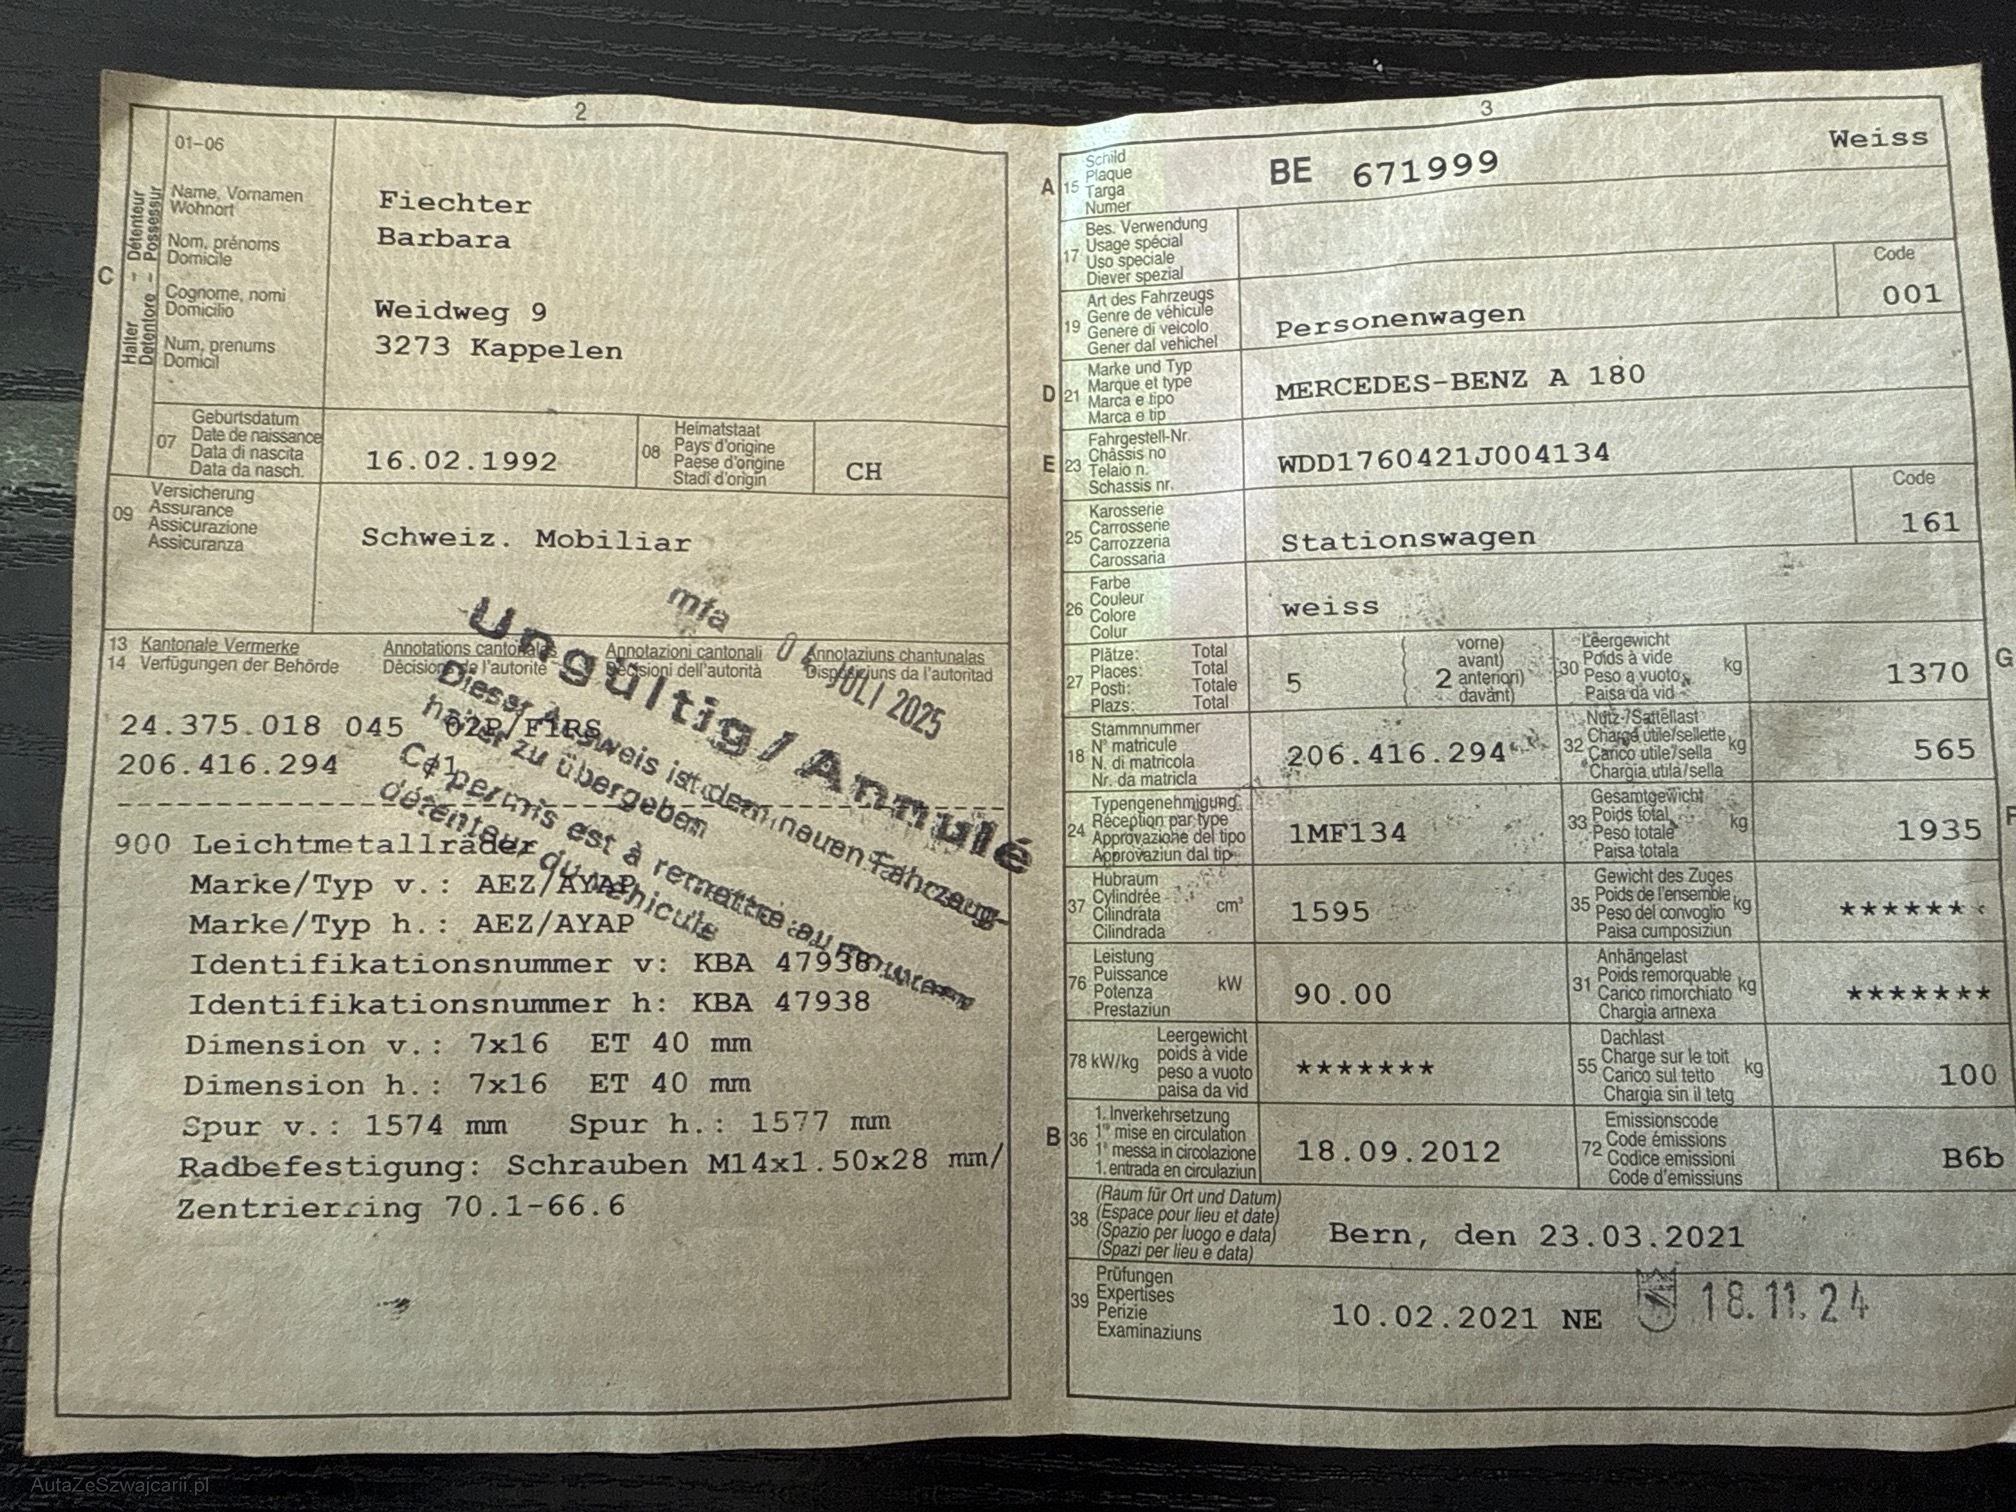 2
01-06
C
Halter - Détenteur
Detentore - Possessur
Name, Vornamen
Wohnort
Nom, prénoms
Domicile
Cognome, nomi
Domicilio
Num, prenums
Domicil
Fiechter
Barbara
Weidweg 9
3273 Kappelen
07
Geburtsdatum
Date de naissance
Data di nascita
Data da nasch.
16.02.1992
08
Heimatstaat
Pays d'origine
Paese d'origine
Stadi d'origin
CH
09
Versicherung
Assurance
Assicurazione
Assicuranza
Schweiz. Mobiliar
13 Kantonale Vermerke Annotations cantonales Annotazioni cantonali Annotaziuns chantunalas
14 Verfügungen der Behörde Décisions de l'autorité Decisioni dell'autorità Disposiziuns da l'autoritad
mfa
04. JULI 2025
Ungültig / Annulé
Dieser Ausweis ist dem neuen Fahrzeug-
halter zu übergeben
Ce permis est à remettre au nouveau
détenteur du véhicule
24.375.018 045 02P/F1RS
206.416.294
900 Leichtmetallräder
Marke/Typ v.: AEZ/AYAP
Marke/Typ h.: AEZ/AYAP
Identifikationsnummer v: KBA 47938
Identifikationsnummer h: KBA 47938
Dimension v.: 7x16 ET 40 mm
Dimension h.: 7x16 ET 40 mm
Spur v.: 1574 mm Spur h.: 1577 mm
Radbefestigung: Schrauben M14x1.50x28 mm/
Zentrierring 70.1-66.6
3
A 15
Schild
Plaque
Targa
Numer
BE 671999
Weiss
17
Bes. Verwendung
Usage spécial
Uso speciale
Diever spezial
19
Art des Fahrzeugs
Genre de véhicule
Genere di veicolo
Gener dal vehichel
Personenwagen
Code
001
D 21
Marke und Typ
Marque et type
Marca e tipo
Marca e tip
MERCEDES-BENZ A 180
E 23
Fahrgestell-Nr.
Châssis no
Telaio n.
Schassis nr.
WDD1760421J004134
25
Karosserie
Carrosserie
Carrozzeria
Carossaria
Stationswagen
Code
161
26
Farbe
Couleur
Colore
Colur
weiss
27
Plätze: Total
Places: Total
Posti: Totale
Plazs: Total
5
2
vorne)
avant)
anteriori)
davánt)
30
Leergewicht
Poids à vide
Peso a vuoto
Paisa da vid
kg
1370
G
18
Stammnummer
N° matricule
N. di matricola
Nr. da matricla
206.416.294
32
Nutz-/Sattellast
Charge utile/sellette
Carico utile/sella
Chargia utila/sella
kg
565
24
Typengenehmigung
Réception par type
Approvazione del tipo
Approvaziun dal tip
1MF134
33
Gesamtgewicht
Poids total
Peso totale
Paisa totala
kg
1935
F
37
Hubraum
Cylindrée
Cilindrata
Cilindrada
cm³
1595
35
Gewicht des Zuges
Poids de l'ensemble
Peso del convoglio
Paisa cumposiziun
kg
*******
76
Leistung
Puissance
Potenza
Prestaziun
kW
90.00
31
Anhängelast
Poids remorquable
Carico rimorchiato
Chargia annexa
kg
*******
78 kW/kg
Leergewicht
poids à vide
peso a vuoto
paisa da vid
*******
55
Dachlast
Charge sur le toit
Carico sul tetto
Chargia sin il tetg
kg
100
B 36
1. Inverkehrsetzung
1re mise en circulation
1a messa in circolazione
1. entrada en circulaziun
18.09.2012
72
Emissionscode
Code émissions
Codice emissioni
Code d'emissiuns
B6b
38
(Raum für Ort und Datum)
(Espace pour lieu et date)
(Spazio per luogo e data)
(Spazi per lieu e data)
Bern, den 23.03.2021
39
Prüfungen
Expertises
Perizie
Examinaziuns
10.02.2021 NE
18.11.24
AutaZeSzwajcarii.pl